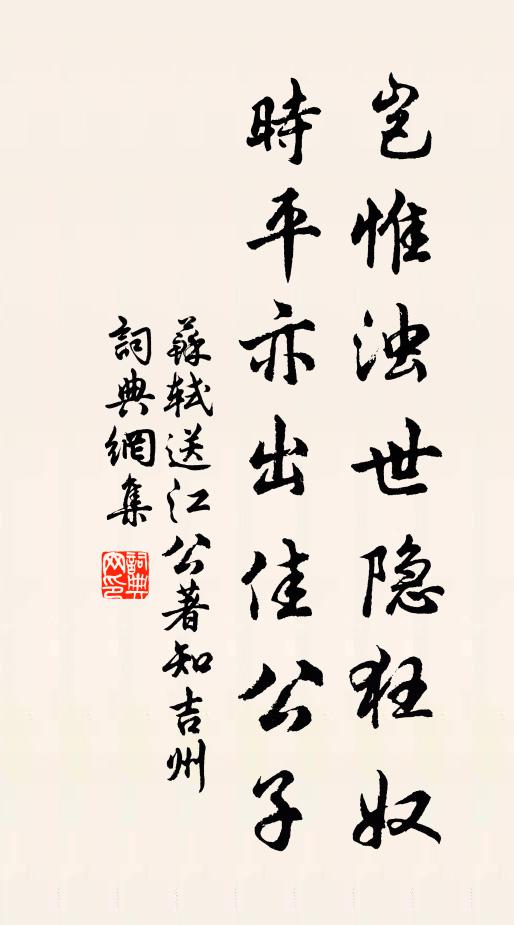 岂惟浊世隐狂奴
时平亦出佳公子
蘇軾送江公著知吉州
詞典網集
詞典网印